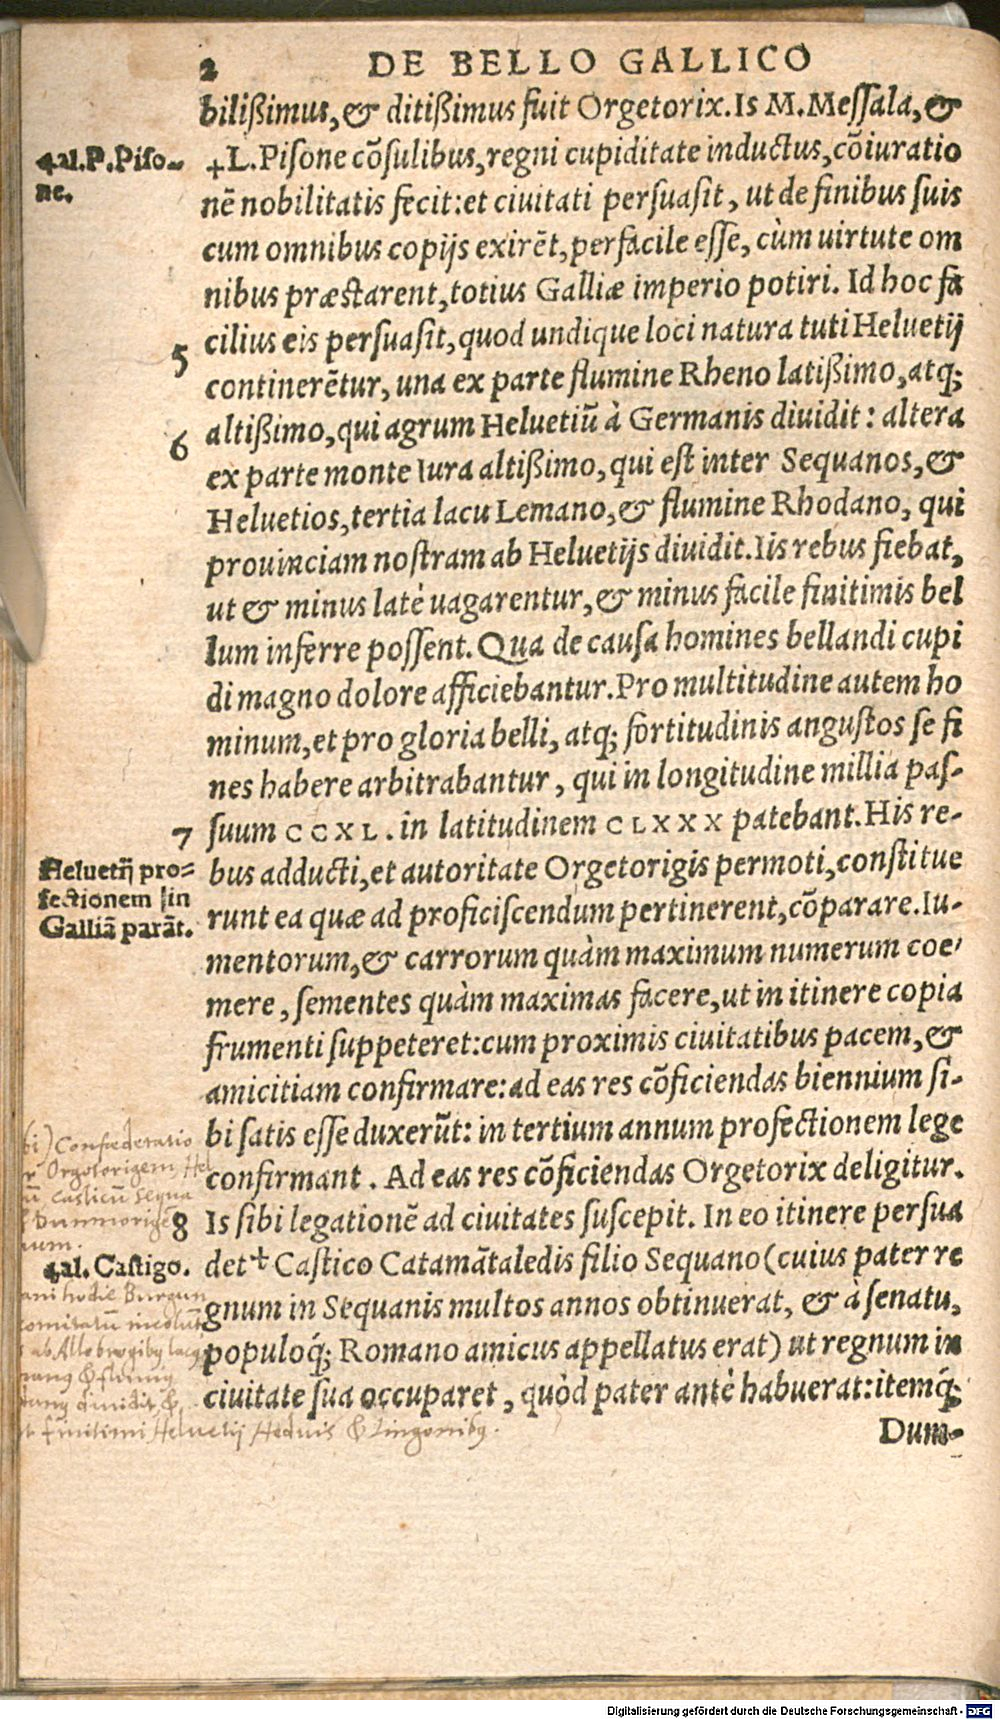 2 DE BELLO GALLICO
bilißimus, & ditißimus fuit Orgetorix. Is M. Meſſala, &
✢al. P. Piſo-
ne.
✢L. Piſone cōſulibus, regni cupiditate inductus, cōiuratio
nē nobilitatis fecit: et ciuitati perſuaſit, ut de finibus ſuis
cum omnibus copijs exirēt, perfacile eſſe, cùm uirtute om
nibus præſtarent, totius Galliæ imperio potiri. Id hoc fa
5
cilius eis perſuaſit, quod undique loci natura tuti Heluetij
continerētur, una ex parte flumine Rheno latißimo, atq;
6
altißimo, qui agrum Heluetiū à Germanis diuidit: altera
ex parte monte Iura altißimo, qui eſt inter Sequanos, &
Heluetios, tertia lacu Lemano, & flumine Rhodano, qui
prouinciam noſtram ab Heluetijs diuidit. Iis rebus fiebat,
ut & minus latè uagarentur, & minus facile finitimis bel
lum inferre poſſent. Qua de cauſa homines bellandi cupi
di magno dolore afficiebantur. Pro multitudine autem ho
minum, et pro gloria belli, atq; fortitudinis anguſtos ſe fi
nes habere arbitrabantur, qui in longitudine millia paſ-
7
ſuum CCXL. in latitudinem CLXXX patebant. His re-
Heluetij pro-
fectionem in
Galliā parāt.
bus adducti, et autoritate Orgetorigis permoti, conſtitue
runt ea quæ ad proficiſcendum pertinerent, cōparare. Iu-
mentorum, & carrorum quàm maximum numerum coe-
mere, ſementes quàm maximas facere, ut in itinere copia
frumenti ſuppeteret: cum proximis ciuitatibus pacem, &
amicitiam confirmare: ad eas res cōficiendas biennium ſi-
bi ſatis eſſe duxerūt: in tertium annum profectionem lege
confirmant. Ad eas res cōficiendas Orgetorix deligitur.
Confœderatio
Orgetorigem, Hel
Casticū Sequa
Dumnorigē
8
Is ſibi legationē ad ciuitates ſuſcepit. In eo itinere perſua
✢al. Caſtigo.
det ✢ Caſtico Catamātaledis filio Sequano (cuius pater re
gnum in Sequanis multos annos obtinuerat, & à ſenatu,
populoq́; Romano amicus appellatus erat) ut regnum in
ciuitate ſua occuparet, quòd pater antè habuerat: itemq́;
hodie Burgun
ab Allobrogibus
diuidit &
finitimi Heluetij Heduis & Lingonibus.
Dum-
Digitalisierung gefördert durch die Deutsche Forschungsgemeinschaft - DFG